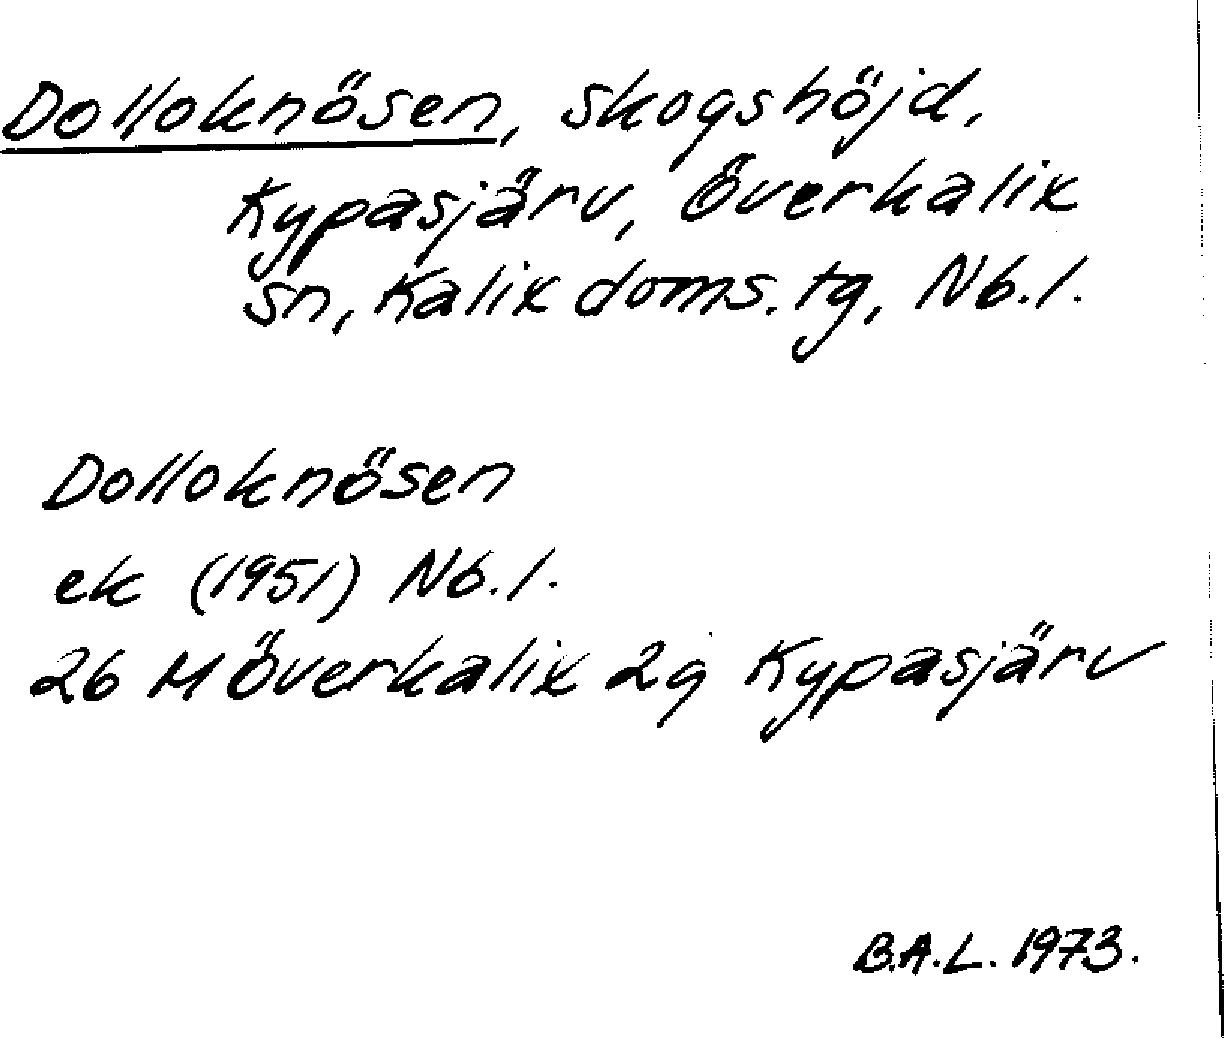 Dolloknösen, skogshöjd,
Kypasjärv, Överkalix
sn, Kalix doms. tg, Nb. l.
Dolloknösen
ek (1951) Nb. l.
26 M Överkalix 2g Kypasjärv
B.A.L. 1973.